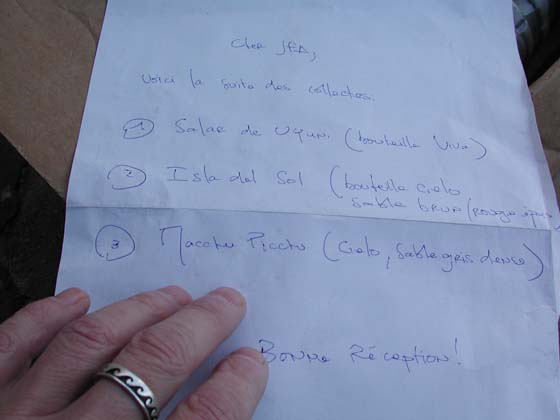 Cher JFA,
Voici la suite des collectes.
1 Salar de Uyuni (bouteille Viva)
2 Isla del Sol (bouteille Cielo
sable brun/rouge
3 Macchu Picchu (Cielo, sable gris dense)
Bonne Réception!